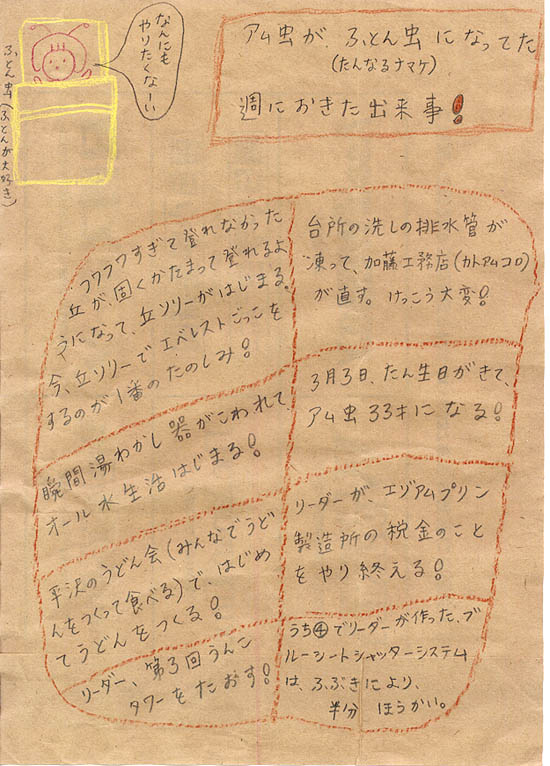 アム虫が、ふとん虫になってた
(たんなるナマケ)
週におきた出来事!
なんにも
やりたくなーい
ふとん虫(ふとんが大好き)
フワフワすぎて登れなかった
丘が、固くかたまって登れるよ
うになって、丘ソリーがはじまる。
今、丘ソリーでエベレストごっこを
するのが1番のたのしみ!
瞬間湯わかし器がこわれて、
オール水生活はじまる!
平沢のうどん会(みんなでうど
んをつくって食べる)で、はじめ
てうどんをつくる!
リーダー、第3回うんこ
タワーをたおす!
台所の洗しの排水管が
凍って、加藤工務店(カトアムコロ)
が直す。けっこう大変!
3月3日、たん生日がきて、
アム虫33才になる!
リーダーが、エゾアムプリン
製造所の税金のこと
をやり終える!
うち④でリーダーが作った、ブ
ルーシートシャッターシステム
は、ふぶきにより、
半分 ほうかい。